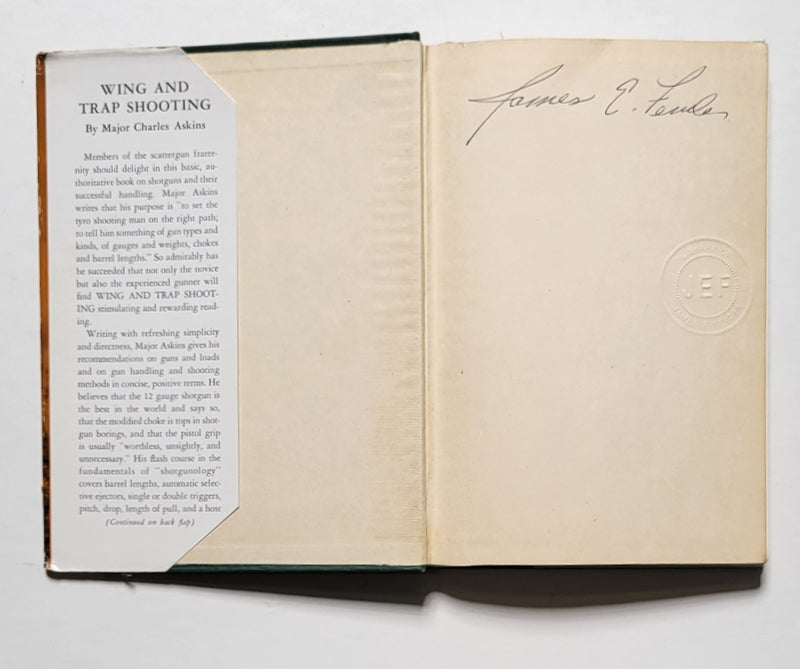 WING AND
TRAP SHOOTING
By Major Charles Askins
Members of the scattergun frater-
nity should delight in this basic, au-
thoritative book on shotguns and their
successful handling. Major Askins
writes that his purpose is "to set the
tyro shooting man on the right path;
to tell him something of gun types and
kinds, of gauges and weights, chokes
and barrel lengths." So admirably has
he succeeded that not only the novice
but also the experienced gunner will
find WING AND TRAP SHOOT-
ING stimulating and rewarding read-
ing.
Writing with refreshing simplicity
and directness, Major Askins gives his
recommendations on guns and loads
and on gun handling and shooting
methods in concise, positive terms. He
believes that the 12 gauge shotgun is
the best in the world and says so,
that the modified choke is tops in shot-
gun borings, and that the pistol grip
is usually "worthless, unsightly, and
unnecessary." His flash course in the
fundamentals of "shotgunology"
covers barrel lengths, automatic selec-
tive ejectors, single or double triggers,
pitch, drop, length of pull, and a host
(Continued on back flap)
James E.
LIBRARY OF
JEF